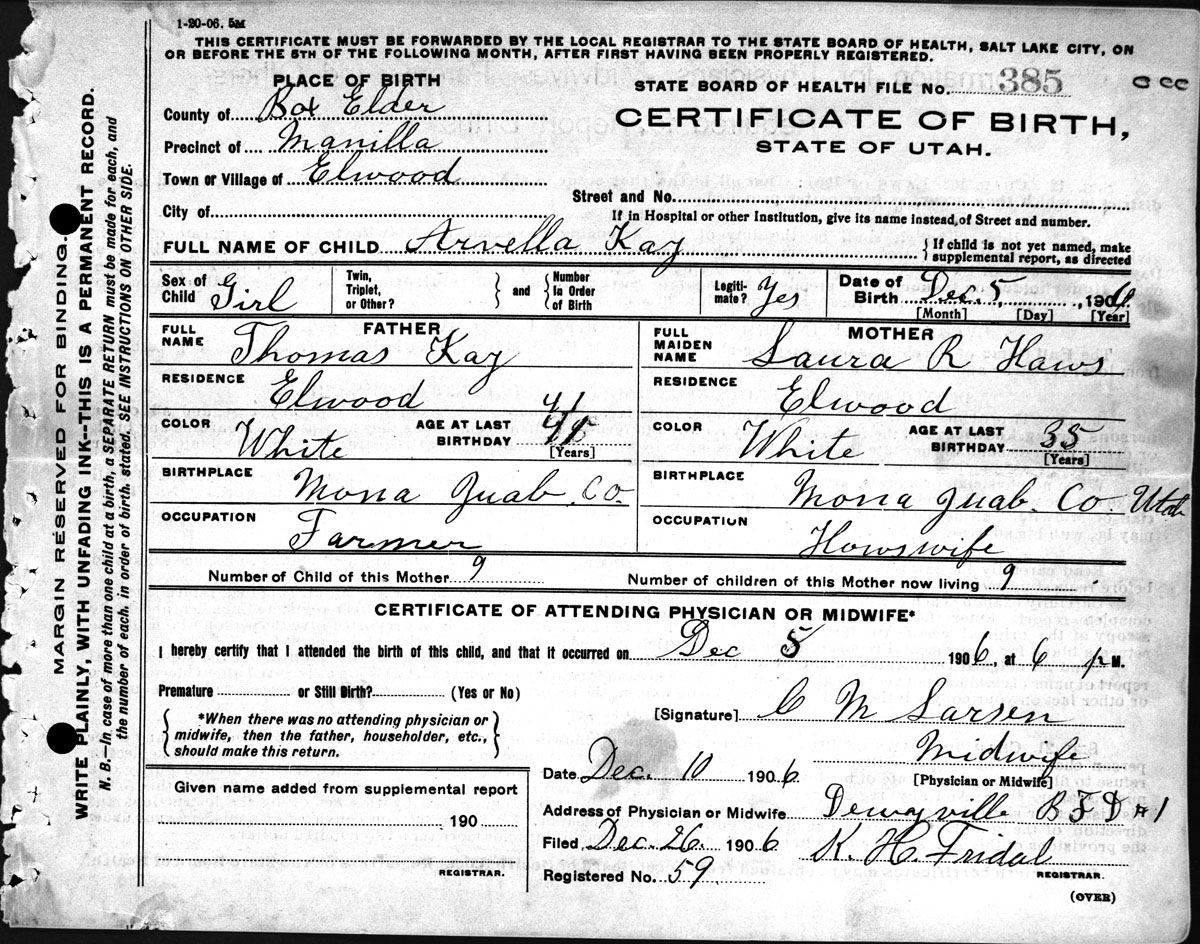 1-20-06. 5M
THIS CERTIFICATE MUST BE FORWARDED BY THE LOCAL REGISTRAR TO THE STATE BOARD OF HEALTH, SALT LAKE CITY, ON
OR BEFORE THE 5TH OF THE FOLLOWING MONTH, AFTER FIRST HAVING BEEN PROPERLY REGISTERED.
MARGIN RESERVED FOR BINDING.
WRITE PLAINLY, WITH UNFADING INK--THIS IS A PERMANENT RECORD.
N. B.—In case of more than one child at a birth, a SEPARATE RETURN must be made for each, and
the number of each, in order of birth, stated. SEE INSTRUCTIONS ON OTHER SIDE.
PLACE OF BIRTH
County of Box Elder
Precinct of Manilla
Town or Village of Elwood
City of
STATE BOARD OF HEALTH FILE No. 385
CERTIFICATE OF BIRTH,
STATE OF UTAH.
Street and No.
If in Hospital or other Institution, give its name instead of Street and number.
FULL NAME OF CHILD Arvella Kay { If child is not yet named, make
supplemental report, as directed
Sex of Child Girl
Twin, Triplet, or Other? } and { Number In Order of Birth
Legiti- mate? Yes
Date of Birth Dec. 5, 1906
[Month] [Day] [Year]
FATHER
FULL NAME Thomas Kay
RESIDENCE Elwood
COLOR White AGE AT LAST BIRTHDAY 41
[Years]
BIRTHPLACE Mona Juab. Co.
OCCUPATION Farmer
MOTHER
FULL MAIDEN NAME Laura R Haws
RESIDENCE Elwood
COLOR White AGE AT LAST BIRTHDAY 35
[Years]
BIRTHPLACE Mona Juab. Co. Utah
OCCUPATION Howswife
Number of Child of this Mother 9 Number of children of this Mother now living 9
CERTIFICATE OF ATTENDING PHYSICIAN OR MIDWIFE*
I hereby certify that I attended the birth of this child, and that it occurred on Dec 5 1906, at 6 p M.
Premature or Still Birth? (Yes or No)
{ *When there was no attending physician or
midwife, then the father, householder, etc.,
should make this return. }
[Signature] C M Larsen
Midwife
[Physician or Midwife]
Date Dec. 10 1906
Given name added from supplemental report
190
REGISTRAR.
Address of Physician or Midwife Dewyville R F D #1
Filed Dec. 26 1906 K. H. Fridal
REGISTRAR.
Registered No. 59
(OVER)